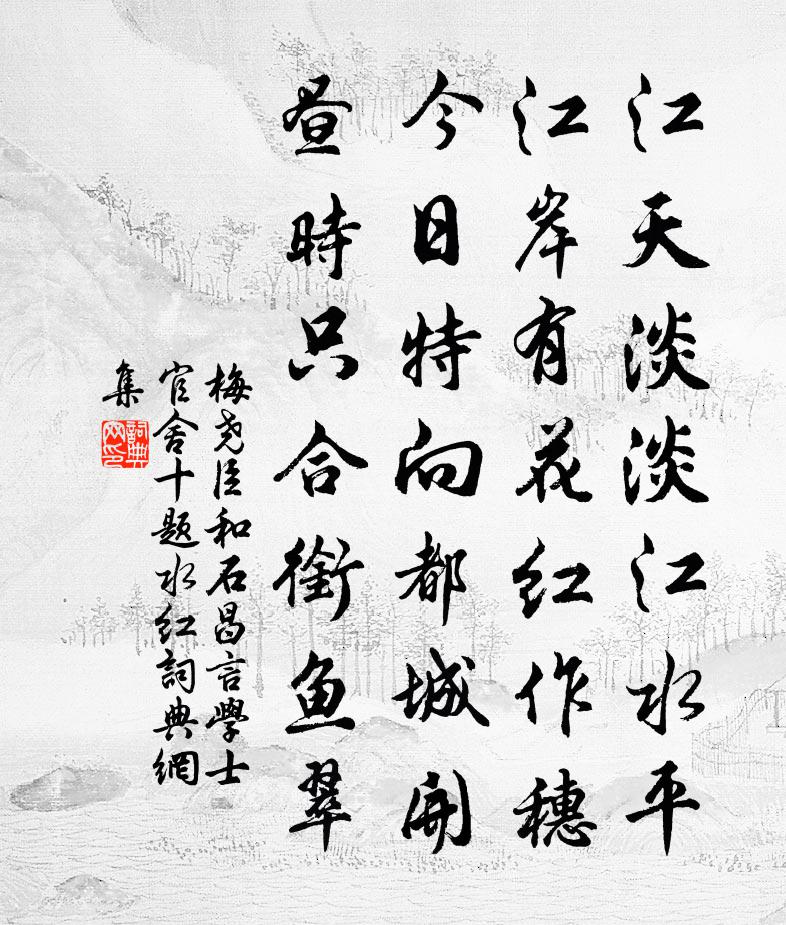 江天淡淡江水平
江岸有花红作穗
今日特向都城開
昔時只合銜鱼翠
梅尧臣和石昌言學士
官舍十题水红詞典網
集
詞典
网印